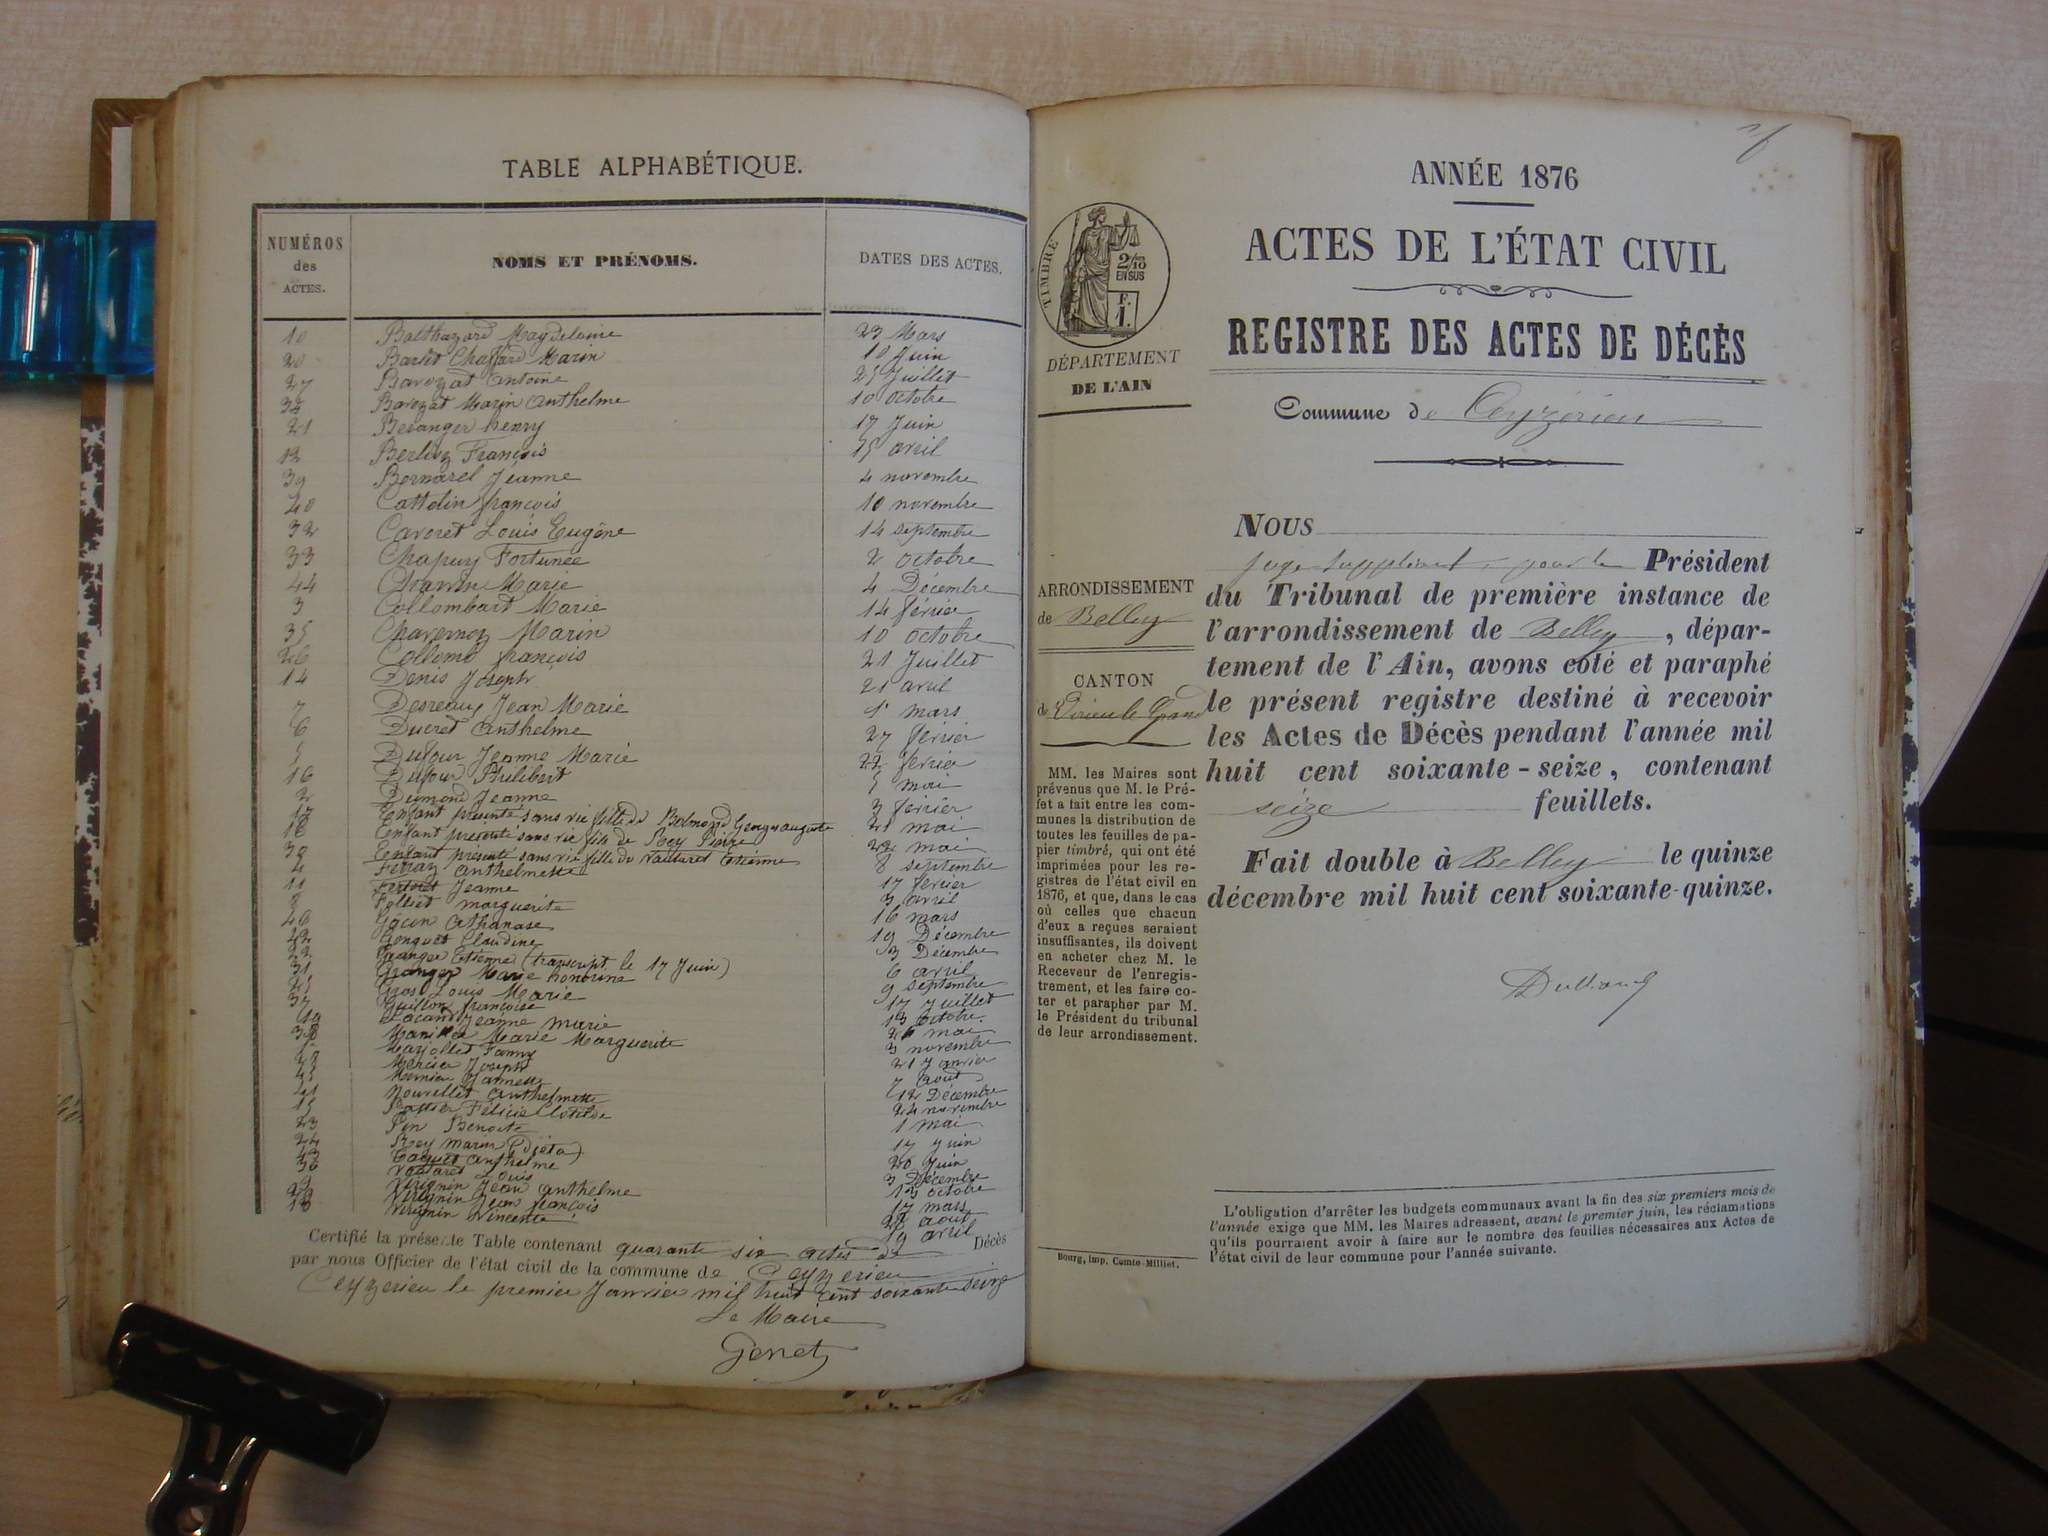 TABLE ALPHABÉTIQUE.
NUMÉROS des ACTES.
NOMS ET PRÉNOMS.
DATES DES ACTES.
10 Balthazard Magdeleine 23 Mars
20 Barlet Chaffard Marin 10 Juin
27 Barozat Antoine 25 Juillet
34 Barozat Marin Anthelme 10 octobre
21 Beranger henry 17 Juin
12 Berlioz François 15 avril
39 Bornarel Jeanne 4 novembre
40 Cattolin françois 10 novembre
32 Cavoret Louis Eugène 14 septembre
33 Chapuy Fortunée 2 octobre
44 Marie 4 Décembre
3 Collombart Marie 14 février
35 Chavernoz Marin 10 octobre
26 Collomb françois 21 Juillet
14 Denis Joseph 21 avril
7 Desreaux Jean Marie 1er mars
6 Ducret Anthelme 27 février
5 Dufour Jeanne Marie 22 février
16 Dufour Philibert 5 mai
2 Dumond Jeanne 3 février
17 Enfant présenté sans vie fille de Belmond Georges auguste 21 mai
18 Enfant présenté sans vie fils de Rey Pierre 22 mai
30 Enfant présenté sans vie fille de Vautaret Etienne 8 septembre
4 Ferraz anthelmette 17 février
11 Jeanne 3 avril
8 Folliet marguerite 16 mars
46 Gocon Athanase 19 Décembre
42 Gonguet Claudine 3 Décembre
22 Granger Etienne (transcript. le 17 Juin) 6 avril
31 Granger Marie honorine 9 septembre
25 Gros Louis Marie 17 Juillet
37 Guillon françoise 13 octobre
19 Jeanne marie 26 mai
38 Marie Marguerite 3 novembre
1 Marjollet Fanny 21 Janvier
28 Mercier Joseph 7 août
45 Mernier Jannette 12 Décembre
41 Nouvellet anthelmette 24 novembre
15 Félicie Clotilde 1 mai
23 Pin Benoite 17 Juin
24 Rey marin (Piéta) 20 Juin
43 Taquet anthelme 3 Décembre
36 Vautaret Louis 13 octobre
9 Virignin Jean anthelme 17 mars
29 Virignin Jean françois 27 août
13 Virignin Vincente 19 avril
Certifié la présente Table contenant quarante six actes de Décès
par nous Officier de l'état civil de la commune de Ceyzerieu
Ceyzerieu le premier Janvier mil huit cent soixante seize
Le Maire
Genet
ANNÉE 1876
ACTES DE L'ÉTAT CIVIL
REGISTRE DES ACTES DE DÉCÈS
Commune de Ceyzérieu
TIMBRE
2/10 EN SUS
F. 1.
DÉPARTEMENT
DE L'AIN
ARRONDISSEMENT
de Belley
CANTON
de Virieu le Grand
MM. les Maires sont
prévenus que M. le Pré-
fet a fait entre les com-
munes la distribution de
toutes les feuilles de pa-
pier timbré, qui ont été
imprimées pour les re-
gistres de l'état civil en
1876, et que, dans le cas
où celles que chacun
d'eux a reçues seraient
insuffisantes, ils doivent
en acheter chez M. le
Receveur de l'enregis-
trement, et les faire co-
ter et parapher par M.
le Président du tribunal
de leur arrondissement.
Bourg, imp. Comte-Milliet.
NOUS
juge suppléant, pour le Président
du Tribunal de première instance de
l'arrondissement de Belley, dépar-
tement de l'Ain, avons coté et paraphé
le présent registre destiné à recevoir
les Actes de Décès pendant l'année mil
huit cent soixante-seize, contenant
seize feuillets.
Fait double à Belley le quinze
décembre mil huit cent soixante-quinze.
L'obligation d'arrêter les budgets communaux avant la fin des six premiers mois de
l'année exige que MM. les Maires adressent, avant le premier juin, les réclamations
qu'ils pourraient avoir à faire sur le nombre des feuilles nécessaires aux Actes de
l'état civil de leur commune pour l'année suivante.